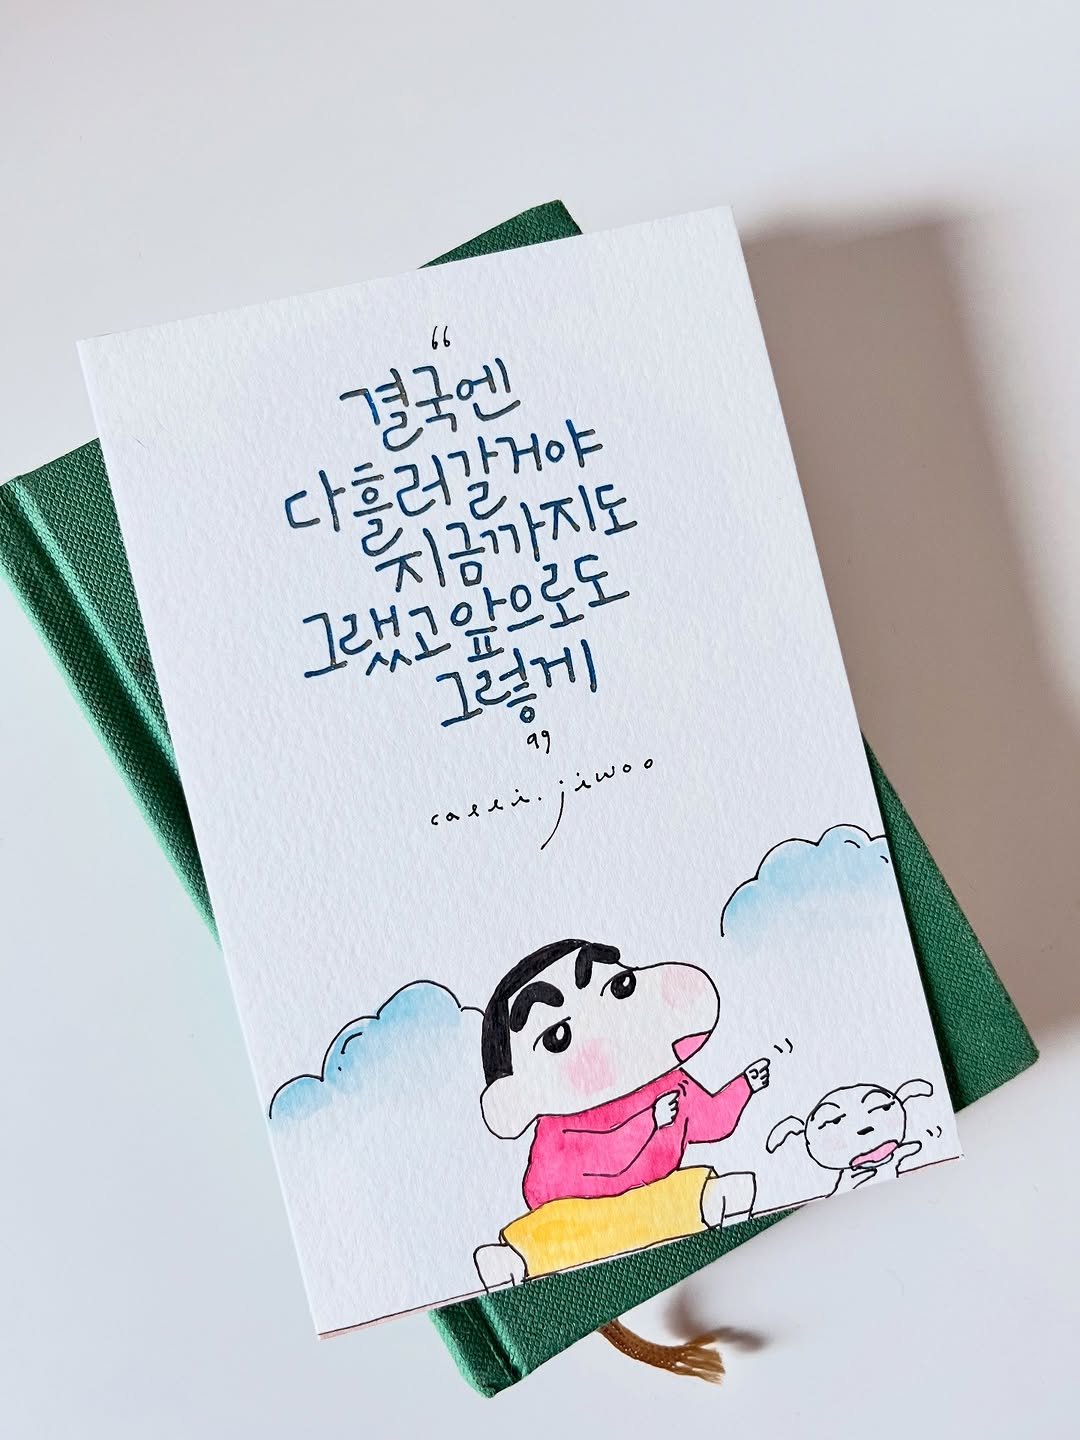 “
결국엔
다흘러갈거야
지금까지도
그랬고앞으로도
그렇게
”
calli.jiwoo